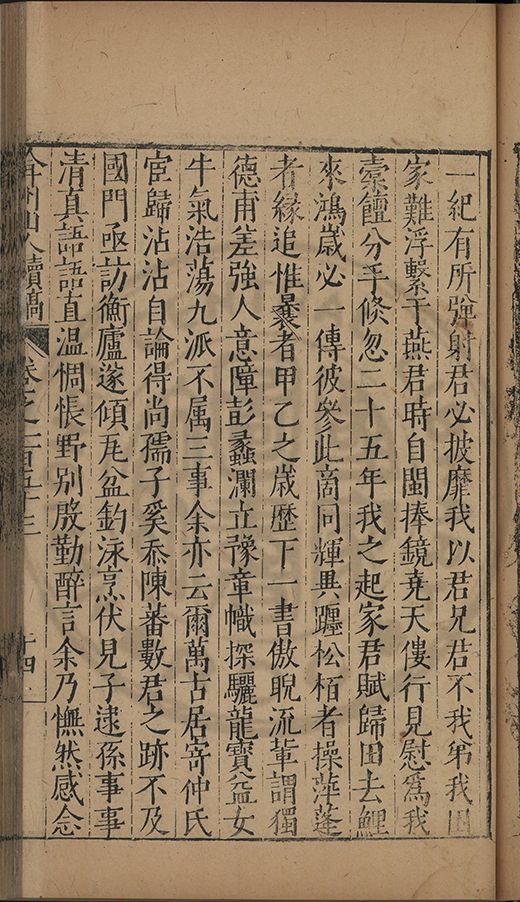 一紀有所彈射君必披靡我以君兄君不我弟我困
家難浮繫于燕君時自閩捧鏡堯天僂行見慰爲我
橐饘分手倏忽二十五年我之起家君賦歸田去鯉
來鴻歲必一傳彼參此啇同輝異躔松栢者操萍蓬
者緣追惟曩者甲乙之歲歷下一書傲睨流輩謂獨
德甫差強人意障彭蠡瀾立豫章幟探驪龍寶盆女
牛氣浩蕩九派不属三事余亦云爾萬古居竒仲氏
宦歸沾沾自論得尚孺子奚忝陳蕃數君之跡不及
國門亟訪衡廬遂傾瓦盆釣泳烹伏見子逮孫事事
清真語語直温惆悵野别殷勤醉言余乃憮然感念
弇州山人續稿 卷之一百五十三 十四